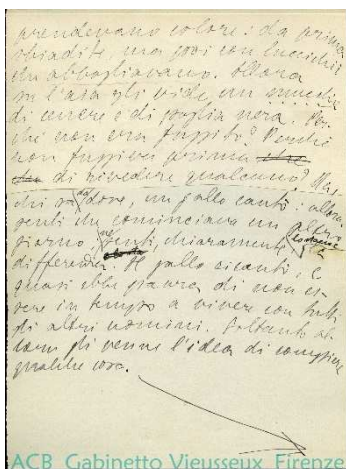 prendevano colore: da prima
sbiadite, ma poi con luccichii
che abbagliavano. Allora
su l'aia gli vide, un mucchio
di cenere e di paglia nera. Per-
ché non era fuggito? Perché
non fuggiva prima
di rivedere qualcuno? Ma
chi dove, un gallo cantò: allora
sentì che cominciava un altro
giorno; ne sentì, chiaramente,
differenza. Il gallo ricantò, e
quasi ebbe paura di non es-
sere in tempo a vivere con tutti
gli altri uomini. Soltanto al-
lora gli venne l'idea di compiere
qualche cosa.
ACB Gabinetto Vieusseux Firenze